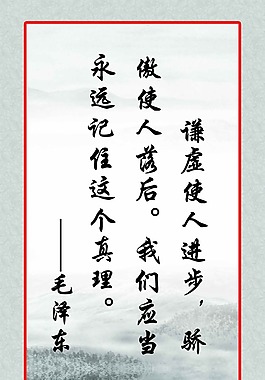 谦虚使人进步，骄
傲使人落后。我们应当
永远记住这个真理。
——毛泽东